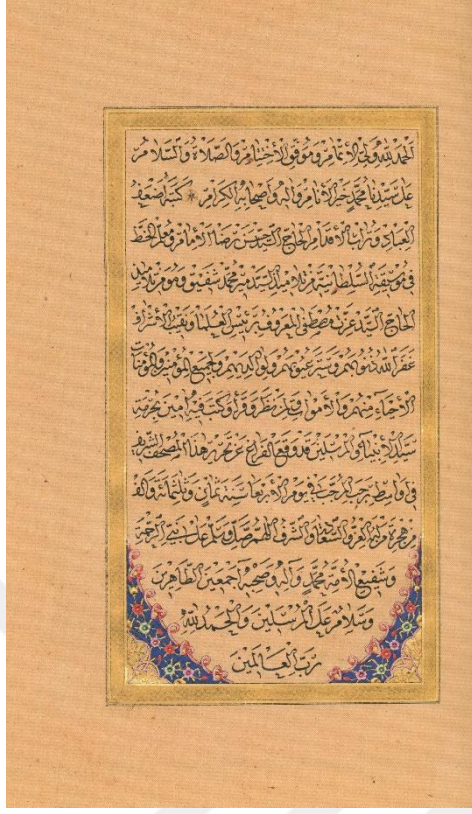 الحمد لله ولي الأنعام وموفق الأختتام والصلاة والسلام
على سيدنا محمد خير الأنام وآله وأصحابه الكرام كتبه أضعف
العباد وتراب الأقدام الحاج السيد حسن رضا الأمام ومعلم الخط
في موسيقة السلطانية من تلاميذ السيد محمد شفيق وهو من تلاميذ
الحاج السيد عزت مصطفى المعروف برئيس العلماء ونقيب الأشراف
غفر الله ذنوبهم وستر عيوبهم ولوالديهم ولجميع المؤمنين والمؤمنات
الأحياء منهم والأموات ولمن نظر وقرأ وكتب فيه آمين بحرمة
سيد الأنبياء والمرسلين قد وقع الفراغ عن تحرير هذا المصحف الشريف
في أواسط رجب المرجب في يوم الأربعا سنة ثمان وثلثمائة والف
من هجرة من له العز والسعادة والشرف اللهم صل وسلم على نبي الرحمة
وشفيع الأمة محمد وآله وصحبه أجمعين الطاهرين
وسلام على المرسلين والحمد لله
رب العالمين